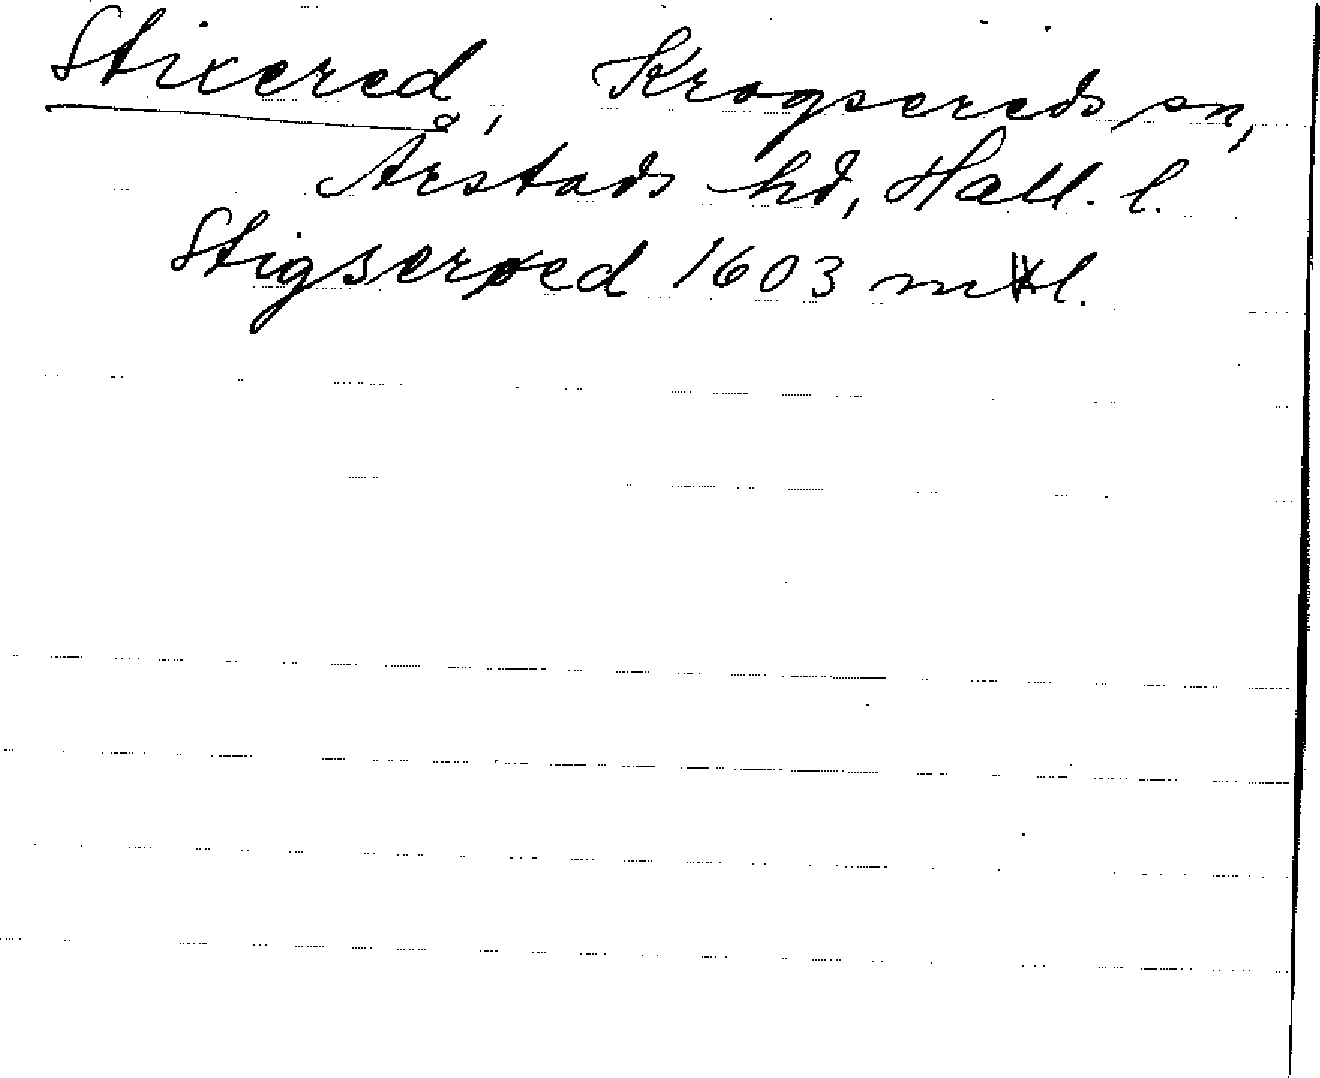 Stixered, Krogsereds sn,
Årstads hd, Hall. l.
Stigserød 1603 mtl.